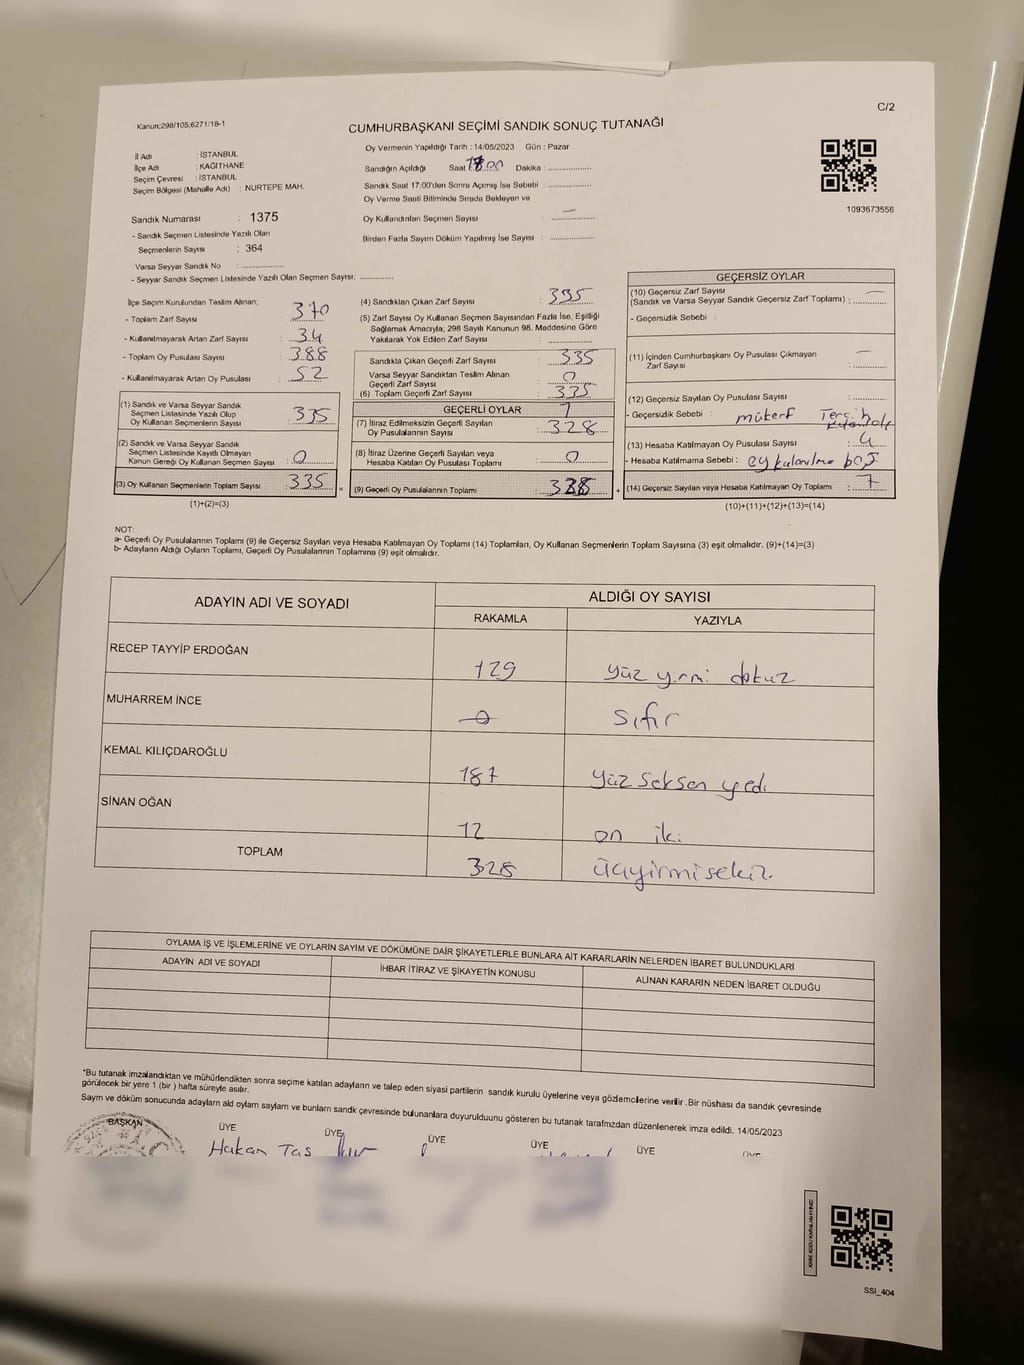 C/2
Kanun;298/105;6271/18-1
CUMHURBAŞKANI SEÇİMİ SANDIK SONUÇ TUTANAĞI
İl Adı : İSTANBUL
İlçe Adı : KAĞITHANE
Seçim Çevresi : İSTANBUL
Seçim Bölgesi (Mahalle Adı) : NURTEPE MAH.
Oy Vermenin Yapıldığı Tarih : 14/05/2023 Gün : Pazar
Sandığın Açıldığı Saat Dakika : ..............
Sandık Saat 17:00'den Sonra Açımış İse Sebebi : ..............
Oy Verme Saati Bitiminde Sırada Bekleyen ve
Oy Kullandırılan Seçmen Sayısı : —
Birden Fazla Sayım Döküm Yapılmış İse Sayısı : ..............
1093673556
Sandık Numarası : 1375
- Sandık Seçmen Listesinde Yazılı Olan
Seçmenlerin Sayısı : 364
Varsa Seyyar Sandık No : ..............
- Seyyar Sandık Seçmen Listesinde Yazılı Olan Seçmen Sayısı: ..............
İlçe Seçim Kurulundan Teslim Alınan;
- Toplam Zarf Sayısı : 370
- Kullanılmayarak Artan Zarf Sayısı : 34
- Toplam Oy Pusulası Sayısı : 388
- Kullanılmayarak Artan Oy Pusulası : 52
(1) Sandık ve Varsa Seyyar Sandık
Seçmen Listesinde Yazılı Olup
Oy Kullanan Seçmenlerin Sayısı : 335
(2) Sandık ve Varsa Seyyar Sandık
Seçmen Listesinde Kayıtlı Olmayan
Kanun Gereği Oy Kullanan Seçmen Sayısı : 0
(3) Oy Kullanan Seçmenlerin Toplam Sayısı : 335
(1)+(2)=(3)
(4) Sandıktan Çıkan Zarf Sayısı : 335
(5) Zarf Sayısı Oy Kullanan Seçmen Sayısından Fazla İse, Eşitliği
Sağlamak Amacıyla; 298 Sayılı Kanunun 98. Maddesine Göre
Yakılarak Yok Edilen Zarf Sayısı : ..............
Sandıkta Çıkan Geçerli Zarf Sayısı : 335
Varsa Seyyar Sandıktan Teslim Alınan
Geçerli Zarf Sayısı : 0
(6) Toplam Geçerli Zarf Sayısı : 335
GEÇERLİ OYLAR 7
(7) İtiraz Edilmeksizin Geçerli Sayılan
Oy Pusulalarının Sayısı : 328
(8) İtiraz Üzerine Geçerli Sayılan veya
Hesaba Katılan Oy Pusulası Toplamı : 0
(9) Geçerli Oy Pusulalarının Toplamı : 328
GEÇERSİZ OYLAR
(10) Geçersiz Zarf Sayısı
(Sandık ve Varsa Seyyar Sandık Geçersiz Zarf Toplamı) : —
- Geçersizlik Sebebi :
(11) İçinden Cumhurbaşkanı Oy Pusulası Çıkmayan
Zarf Sayısı : —
(12) Geçersiz Sayılan Oy Pusulası Sayısı : ..............
- Geçersizlik Sebebi :
(13) Hesaba Katılmayan Oy Pusulası Sayısı : 4
- Hesaba Katılmama Sebebi :
(14) Geçersiz Sayılan veya Hesaba Katılmayan Oy Toplamı : 7
(10)+(11)+(12)+(13)=(14)
NOT:
a- Geçerli Oy Pusulalarının Toplamı (9) ile Geçersiz Sayılan veya Hesaba Katılmayan Oy Toplamı (14) Toplamları, Oy Kullanan Seçmenlerin Toplam Sayısına (3) eşit olmalıdır. (9)+(14)=(3)
b- Adayların Aldığı Oyların Toplamı, Geçerli Oy Pusulalarının Toplamına (9) eşit olmalıdır.
ADAYIN ADI VE SOYADI
ALDIĞI OY SAYISI
RAKAMLA YAZIYLA
RECEP TAYYİP ERDOĞAN 129 yüz yirmi dokuz
MUHARREM İNCE 0 sıfır
KEMAL KILIÇDAROĞLU 187 yüz seksen yedi
SİNAN OĞAN 12 on iki
TOPLAM 328 üçyirmisekiz
OYLAMA İŞ VE İŞLEMLERİNE VE OYLARIN SAYIM VE DÖKÜMÜNE DAİR ŞİKAYETLERLE BUNLARA AİT KARARLARIN NELERDEN İBARET BULUNDUKLARI
ADAYIN ADI VE SOYADI İHBAR İTİRAZ VE ŞİKAYETİN KONUSU ALINAN KARARIN NEDEN İBARET OLDUĞU
*Bu tutanak imzalandıktan ve mühürlendikten sonra seçime katılan adayların ve talep eden siyasi partilerin sandık kurulu üyelerine veya gözlemcilerine verilir .Bir nüshası da sandık çevresinde
görülecek bir yere 1 (bir ) hafta süreyle asılır.
Saym ve döküm sonucunda adayların ald oylam saylam ve bunların sandk çevresinde bulunanlara duyurulduunu gösteren bu tutanak tarafmzdan düzenlenerek imza edildi. 14/05/2023
BAŞKAN ÜYE ÜYE ÜYE ÜYE ÜYE
Hakan Tas
KARE KODU KARALAMAYINIZ!
SSI_404